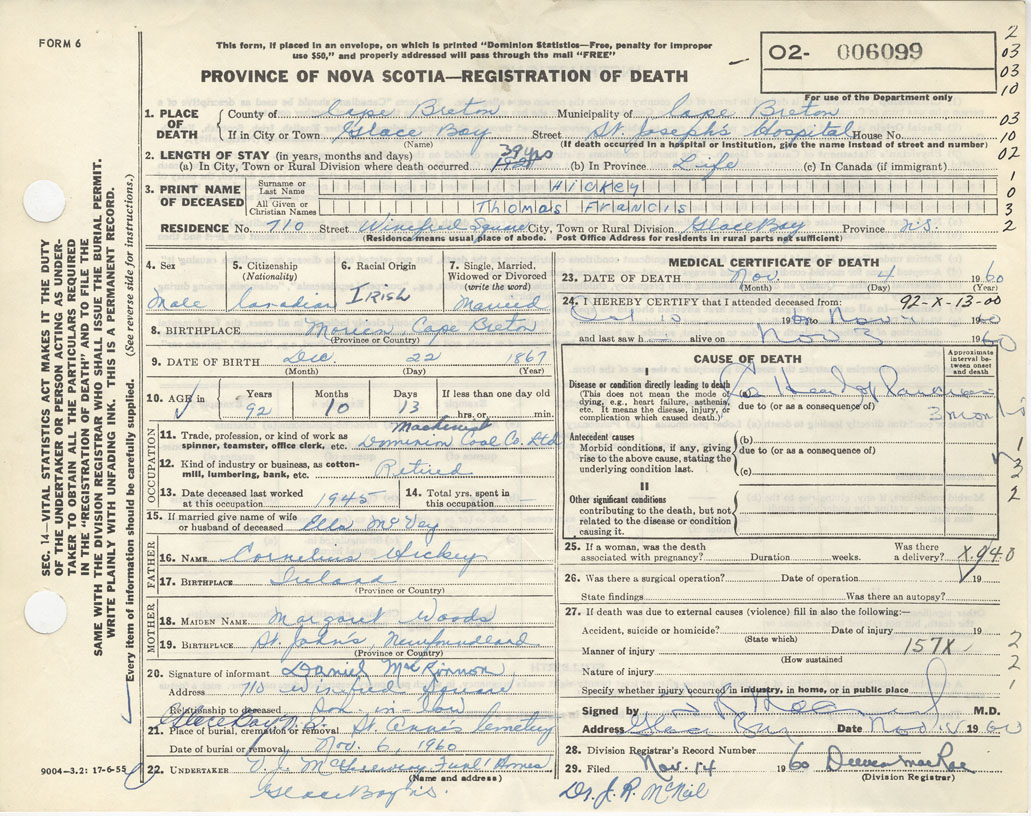 FORM 6
This form, if placed in an envelope, on which is printed "Dominion Statistics—Free, penalty for improper
use $50," and properly addressed will pass through the mail "FREE"
PROVINCE OF NOVA SCOTIA—REGISTRATION OF DEATH
O2- 006099
For use of the Department only
2
03
03
10
03
10
02
1
0
3
2
1. PLACE OF DEATH
County of Cape Breton Municipality of Cape Breton
If in City or Town Glace Bay Street St. Joseph's Hospital House No.
(Name) (If death occurred in a hospital or institution, give the name instead of street and number)
2. LENGTH OF STAY (in years, months and days)
(a) In City, Town or Rural Division where death occurred 39 yrs (b) In Province Life (c) In Canada (if immigrant)
3. PRINT NAME OF DECEASED
Surname or Last Name Hickey
All Given or Christian Names Thomas Francis
RESIDENCE No. 710 Street Winifred Square City, Town or Rural Division Glace Bay Province N.S.
(Residence means usual place of abode. Post Office Address for residents in rural parts not sufficient)
4. Sex Male
5. Citizenship (Nationality) Canadian
6. Racial Origin IRISH
7. Single, Married, Widowed or Divorced (write the word) Married
8. BIRTHPLACE Morien, Cape Breton
(Province or Country)
9. DATE OF BIRTH Dec 22 1867
(Month) (Day) (Year)
10. AGE in Years 92 Months 10 Days 13 If less than one day old hrs. or min.
OCCUPATION
11. Trade, profession, or kind of work as spinner, teamster, office clerk, etc. Machinist Dominion Coal Co. Ltd
12. Kind of industry or business, as cotton-mill, lumbering, bank, etc. Retired
13. Date deceased last worked at this occupation 1945 14. Total yrs. spent in this occupation
15. If married give name of wife or husband of deceased Ella McVey
FATHER
16. NAME Cornelius Hickey
17. BIRTHPLACE Ireland
(Province or Country)
MOTHER
18. MAIDEN NAME Margaret Woods
19. BIRTHPLACE St. John's, Newfoundland
(Province or Country)
20. Signature of informant Daniel MacKinnon
Address 710 Winifred Square
Glace Bay N.S.
Relationship to deceased Son-in-law
21. Place of burial, cremation or removal St. Anne's Cemetery
Date of burial or removal Nov. 6, 1960
22. UNDERTAKER Funl Homes
(Name and address)
Glace Bay N.S.
9004-3.2: 17-6-55
MEDICAL CERTIFICATE OF DEATH
23. DATE OF DEATH Nov. 4 1960
(Month) (Day) (Year)
24. I HEREBY CERTIFY that I attended deceased from: 92-X-13-00
Oct 10 19 to Nov 4 1960
and last saw h alive on Nov 3 1960
CAUSE OF DEATH
Approximate interval between onset and death
I
Disease or condition directly leading to death
(This does not mean the mode of dying, e.g., heart failure, asthenia, etc. It means the disease, injury, or complication which caused death.)
(a) Ca Head of Pancreas
due to (or as a consequence of)
3 months
Antecedent causes
Morbid conditions, if any, giving rise to the above cause, stating the underlying condition last.
(b)
due to (or as a consequence of)
(c)
II
Other significant conditions
contributing to the death, but not related to the disease or condition causing it.
1
3
2
2
25. If a woman, was the death associated with pregnancy? Duration weeks. Was there a delivery? X.940
26. Was there a surgical operation? Date of operation 19
State findings Was there an autopsy?
27. If death was due to external causes (violence) fill in also the following:—
Accident, suicide or homicide? Date of injury 19
(State which)
Manner of injury 157X
(How sustained
Nature of injury
Specify whether injury occurred in industry, in home, or in public place
2
2
1
Signed by M.D.
Address Glace Bay Date Nov 1960
28. Division Registrar's Record Number
29. Filed Nov. 14 1960 MacRae
(Division Registrar)
Dr. J. R. McNeil
SEC. 14—VITAL STATISTICS ACT MAKES IT THE DUTY
OF THE UNDERTAKER OR PERSON ACTING AS UNDER-
TAKER TO OBTAIN ALL THE PARTICULARS REQUIRED
IN THE "REGISTRATION OF DEATH" AND TO FILE THE
SAME WITH THE DIVISION REGISTRAR WHO SHALL ISSUE THE BURIAL PERMIT.
WRITE PLAINLY WITH UNFADING INK. THIS IS A PERMANENT RECORD.
Every item of information should be carefully supplied. (See reverse side for instructions.)